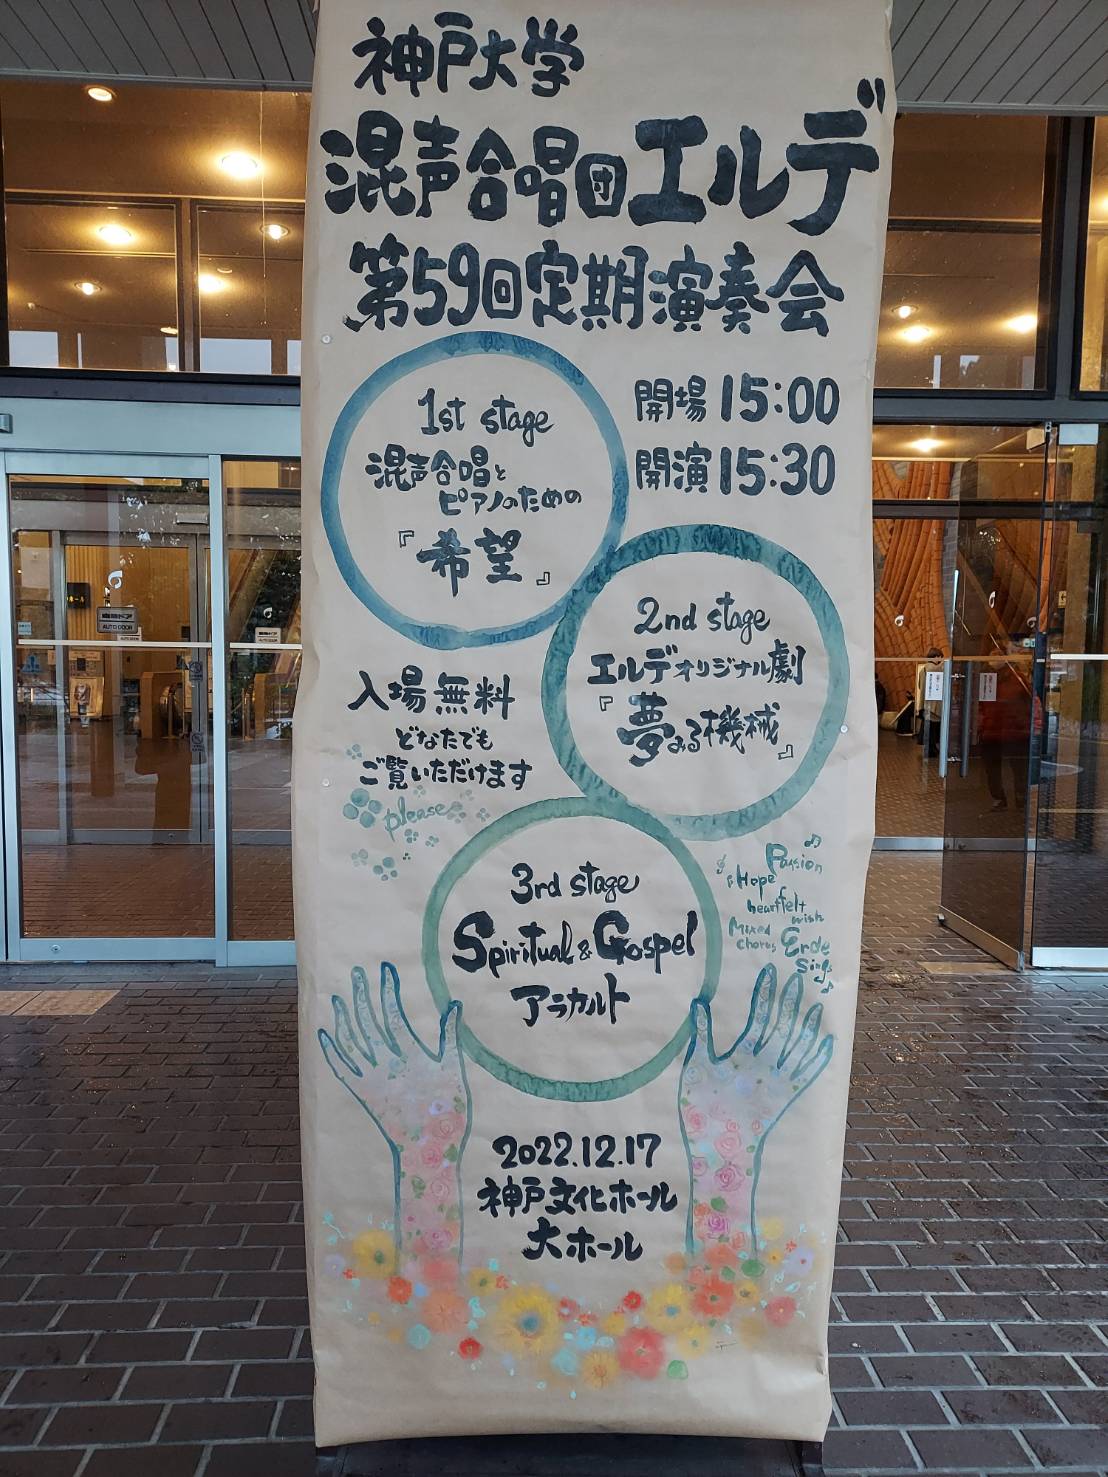 神戸大学
混声合唱団エルデ
第59回定期演奏会
開場 15:00
開演 15:30
1st stage
混声合唱と
ピアノのための
『希望』
2nd stage
エルデオリジナル劇
『夢みる機械』
入場無料
どなたでも
ご覧いただけます
please
3rd stage
Spiritual & Gospel
アラカルト
Passion
Hope
heartfelt
wish
Mixed
chorus
Erde
Sing
2022.12.17
神戸文化ホール
大ホール
自動ドア
AUTO DOOR